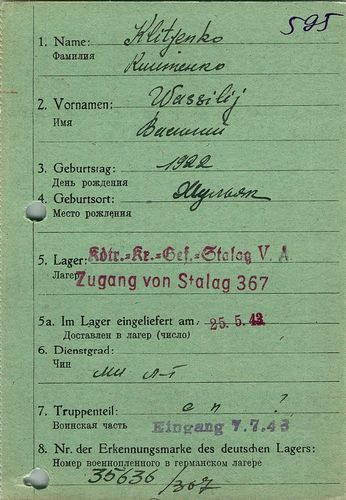 595
1. Name: Klitjenko
Фамилия Клитенко
2. Vornamen: Wassilij
Имя Василий
3. Geburtstag: 1922
День рождения
4. Geburtsort:
Место рождения
5. Lager: Kdtr.=Kr.=Gef.=Stalag V. A
Лагерь
Zugang von Stalag 367
5a. Im Lager eingeliefert am 25. 5. 43
Доставлен в лагерь (число)
6. Dienstgrad:
Чин мл л-т
7. Truppenteil: с п ?
Воинская часть Eingang 7.7.43
8. Nr. der Erkennungsmarke des deutschen Lagers:
Номер военнопленного в германском лагере
35636
/367